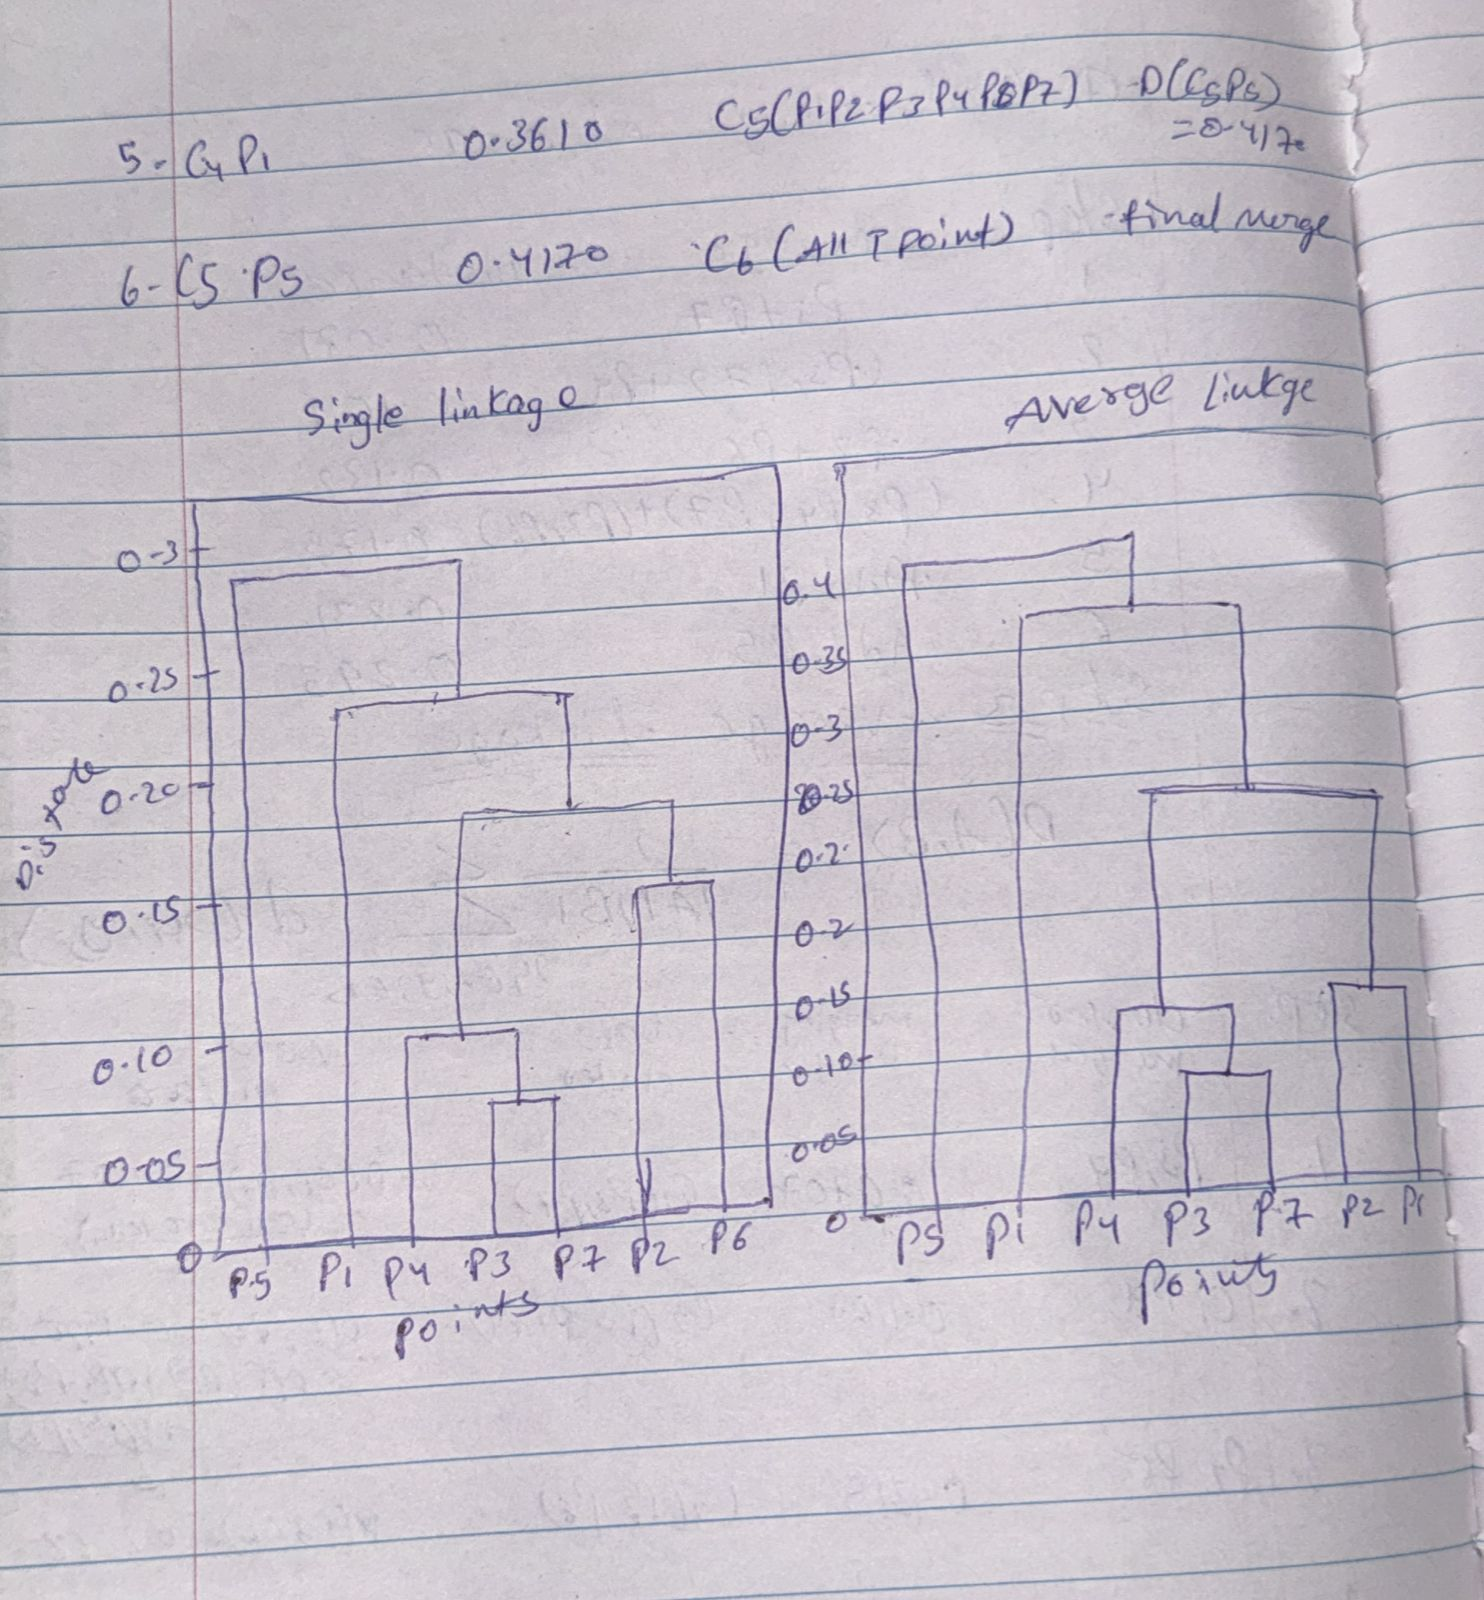 5- C4 P1 0.3610 C5(P1P2 P3 P4 P6P7) -D(C5P5)
=0.4170
6- C5 P5 0.4170 C6 (All 7 point) -final merge
Single linkage
Averge linkge
0-3
0.25
0.20
0.15
0.10
0.05
0
P5 P1 P4 P3 P7 P2 P6
points
0.4
0.35
0-3
0.25
0.2
0.2
0.15
0.10
0.05
0
P5 P1 P4 P3 P7 P2 P1
points